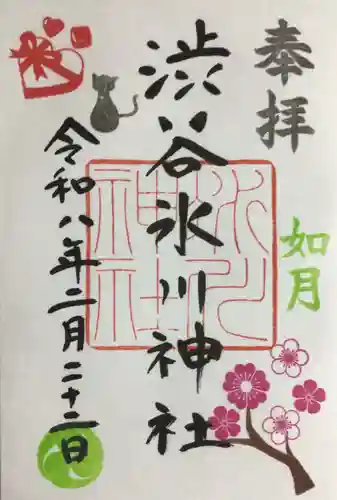 奉拝
如月
渋谷氷川神社
令和八年二月二十二日
氷川
神社